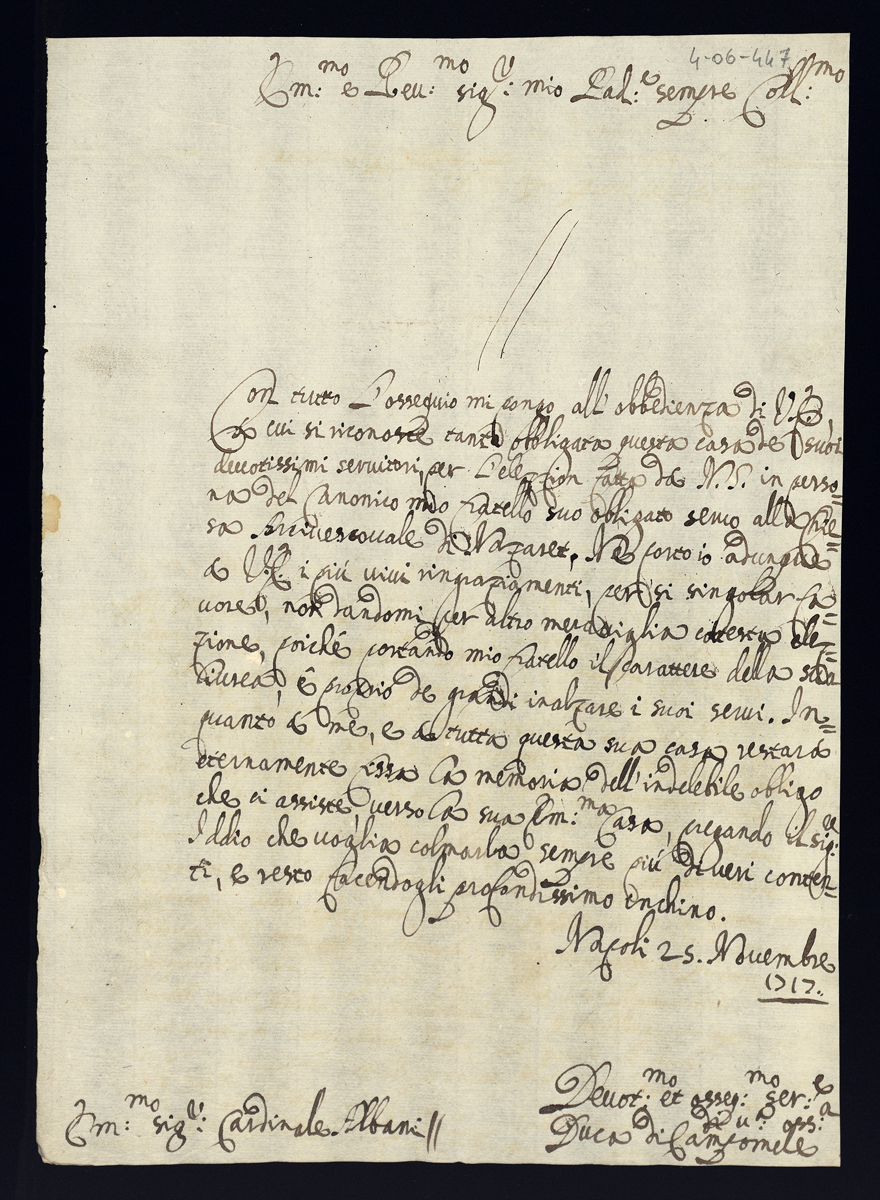 4-06-447
Em:mo e Reu:mo sig:r mio Pad:e sempre Coll:mo
Con tutto l'ossequio mi pongo all'obbedienza di V.E.
a cui si riconosce tanto obbligata questa casa de suoi
deuotissimi seruitori, per l'elezzion fatta da N.S. in perso=
na del Canonico mio fratello suo obligato seruo alla Chie=
sa Arciuescouale di Nazaret, Ne porto io adunque
a V.E. i più viui ringraziamenti, per si singolar fa=
uore, non dandomi per altro merauiglia cotesta ele=
zione, poiché portando mio fratello il carattere della sua
liurea, é proprio de grandi inalzare i suoi serui. In=
quanto a me, e a tutta questa sua casa restarà
eternamente fissa la memoria dell'indelebile obligo
che ci assiste, verso la sua Em:ma Casa, pregando il sig:r
Iddio che uoglia colmarla sempre più di ueri conten=
ti, e resto facendogli profondissimo inchino.
Napoli 25. Nouembre
1717.
Deuot:mo et osseq:mo ser:e
di u:a
Duca di Campomele
Em:mo sig:r Cardinale Albani